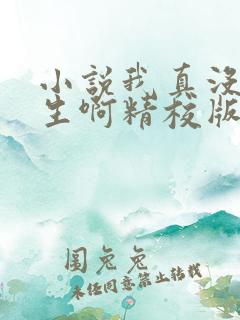 小說我真沒
生啊精校版
圖兔兔
未经同意禁止转载